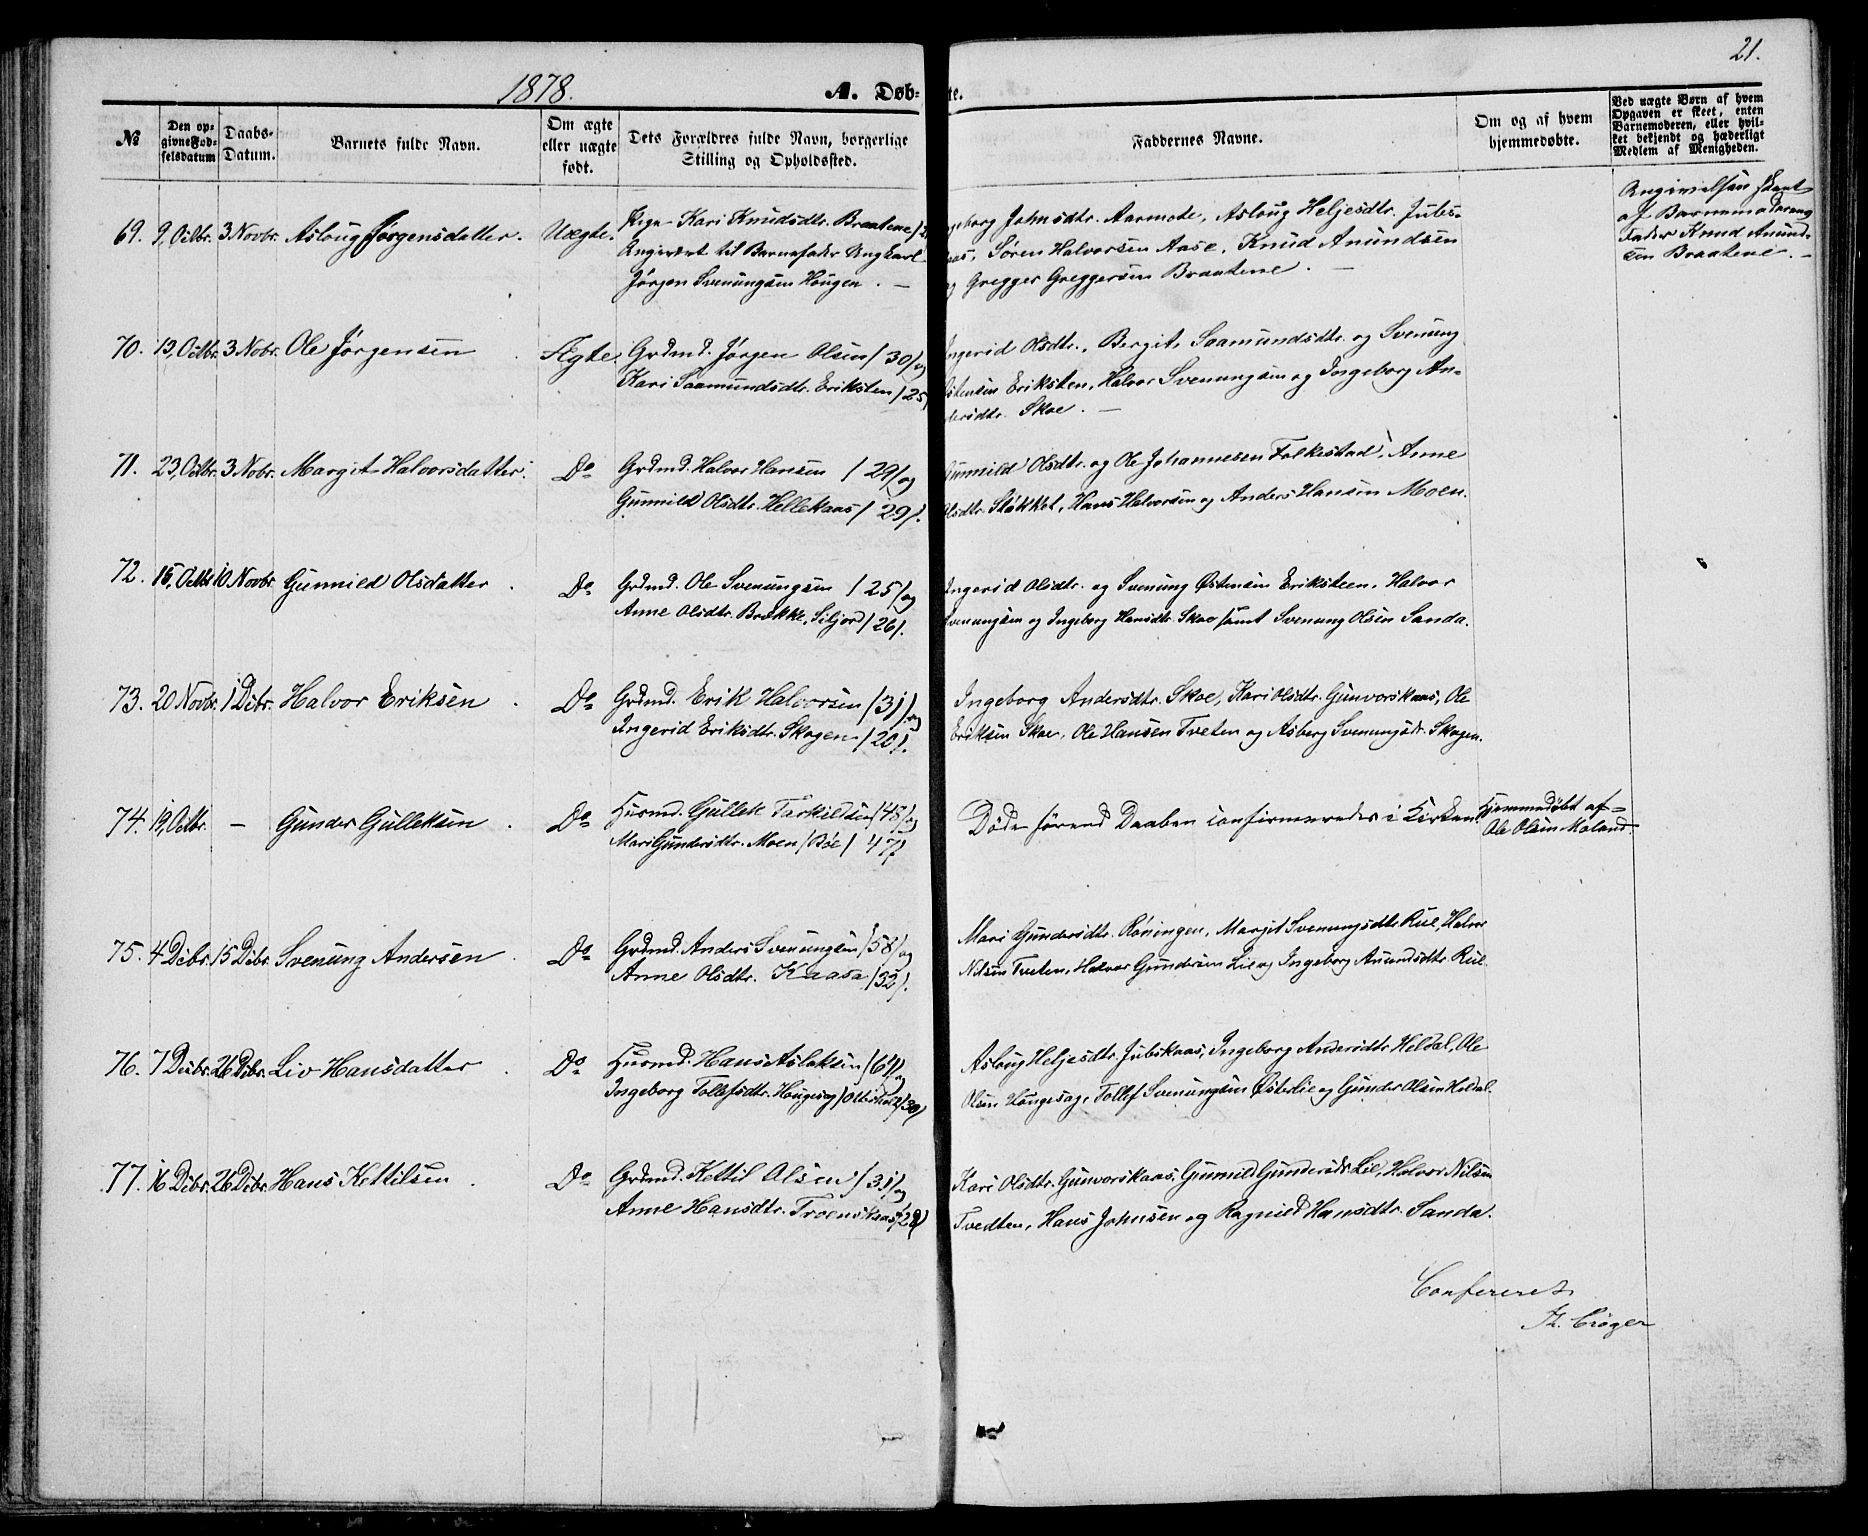 21.
1878.
A. Døb-
te.
№
Den op-
givne Fød-
selsdatum
Daabs-
Datum.
Barnets fulde Navn.
Om ægte
eller uægte
født.
Dets Forældres fulde Navn, borgerlige
Stilling og Opholdssted.
Faddernes Navne.
Om og af hvem
hjemmedøbte.
Ved uægte Børn af hvem
Opgaven er skeet, enten
Barnemoderen, eller hvil-
ket bekjendt og hæderligt
Medlem af Menigheden.
69. 9, Octbr. 3 Novbr. Aslaug Jørgensdatter. Uægte. Pige Kari Knudsdtr. Braatene
Angivent til Barnefader Ungkarl
Jørgen Svenungsen Hougen. —
Johnsdtr. Aarmote, Aslaug Heljesdtr. Jubs-
Søren Halvorsen Aase, Knud Anundsen
Gregger Greggersen Braatene. —
Angivelsen skeet
af Barnemoderens
Fader Knud Anund-
sen Braatene. —
70. 13, Octbr. 3 Nobr. Ole Jørgensen . Ægte. Grdmd. Jørgen Olsen / 30 / og
Kari Saamundsdtr. Eriksten / 25 /
Ingerid Olsdtr., Bergit Saamundsdtr. og Svenung
Eriksten, Halvor Svenungsen og Ingeborg An-
dersdtr. Skoe. —
71. 23, Octbr. 3 Nobr. Margit Halvorsdatter. Do Grdmd. Halvor Hansen / 29 / og
Gunnild Olsdtr. Hellekaas / 29 /.
Gunnild Olsdtr. og Ole Johannesen Folkestad, Anne
Olsdtr. Støkket, Hans Halvorsen og Anders Hansen Moen.
72. 15, Octbr 10 Novbr. Gunnild Olsdatter . Do Grdmd. Ole Svenungsen / 25 / og
Anne Olsdtr. Brække, Siljord / 26 /.
Ingerid Olsdtr. og Svenung Østensen Eriksteen, Halvor
Svenungsen og Ingeborg Hansdtr. Skoe samt Svenung Olsen Sanda.
73. 20 Novbr. 1 Dcbr. Halvor Eriksen . Do Grdmd. Erik Halvorsen / 31 / og
Ingerid Eriksdtr. Skogen / 20 /.
Ingeborg Andersdtr. Skoe, Kari Olsdtr. Gunvorskaas, Ole
Eriksen Skoe, Ole Hansen Tveten og Asberg Svenungsdr. Skogen.
74. 19, Octbr. — Gunder Gulleksen . Do Husmd. Gullek Tarkildsen / 48 / og
Mari Gundersdtr. Moen / Bøe / 47 /
Døde førend Daaben confirmeredes i Kirken. Hjemmedøbt af
Ole Olsen Moland.
75. 4 Dcbr. 15 Dcbr. Svenung Andersen . Do Grdmd. Anders Svenungsen / 58 / og
Anne Olsdtr. Kaasa / 32 /.
Mari Gundersdtr. Røningen, Margit Svenungsdtr. Rue, Halvor
Nilsen Tveten, Halvor Gundersen Lie og Ingeborg Anundsdtr. Rue.
76. 7 Dcbr. 26 Dcbr. Liv Hansdatter . Do Husmd. Hans Aslaksen / 61 / og
Ingeborg Tollefsdtr. Hougesag / / 39 /
Aslaug Heljesdtr. Jubskaas, Ingeborg Andersdtr. Heldal, Ole
Olsen Hougesag, Tollef Svenungsen Østerlie og Gunder Olsen Heldal.
77. 16 Dcbr. 26 Dcbr. Hans Kettilsen . Do Grdmd. Kettil Olsen / 31 / og
Anne Hansdtr. Troenskaas / 28 /
Kari Olsdtr. Gunvorskaas, Gunnild Gundersdtr. Lie, Halvor Nilsen
Tvedten, Hans Johnsen og Ragnild Hansdtr. Sanda.
Confereret
Crøger